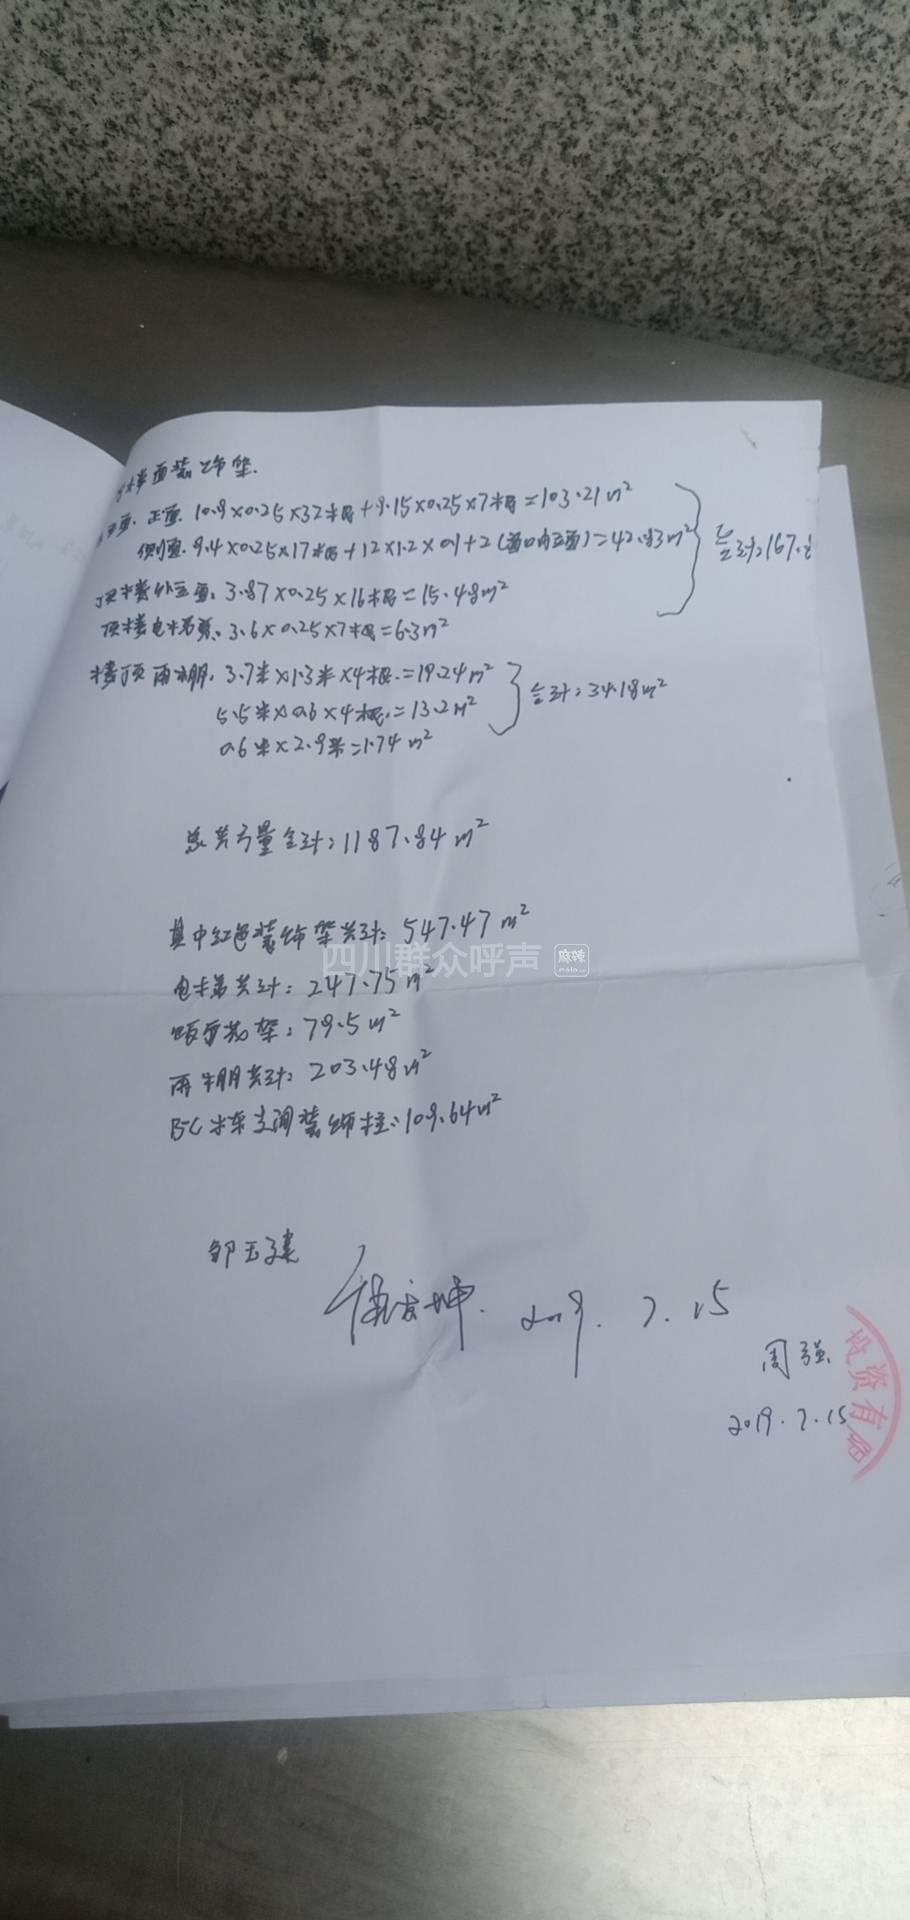 楼面装饰架.
立面. 正面. 10.9×0.25×32根+9.15×0.25×7根=103.21m²
侧面. 9.4×0.25×17根+12×1.2×0.1+2(窗口内立面)=42.83m²
合计:167.
顶楼外立面. 3.87×0.25×16根=15.48m²
顶楼电梯. 3.6×0.25×7根=6.3m²
楼顶雨棚. 3.7米×1.3米×4根.=19.24m²
5.5米×0.6×4根.=13.2m²
合计:34.18m²
0.6米×2.9米=1.74m²
总共方量合计:1187.84m²
其中红色装饰架共计:547.47m²
四川群众呼声 麻辣
电梯共计:247.75m²
架:79.5m²
雨棚共计:203.48m²
B-C栋之间装饰柱:109.64m²
邹玉建
2019.7.15
周强
2019.7.15
投资有